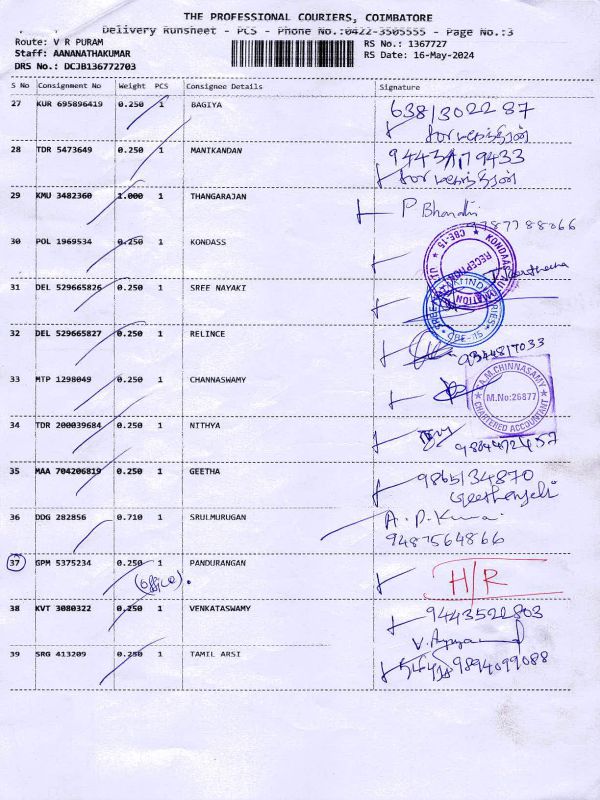 THE PROFESSIONAL COURIERS, COIMBATORE
Delivery Runsheet - PCS - Phone No.:0422-3505555 - Page No.:3
Route: V R PURAM
RS No.: 1367727
Staff: AANANATHAKUMAR
RS Date: 16-May-2024
DRS No.: DCJB136772703
S No Consignment No Weight PCS Consignee Details Signature
27 KUR 695896419 0.250 1 BAGIYA
28 TDR 5473649 0.250 1 MANIKANDAN
29 KMU 3482360 1.000 1 THANGARAJAN
30 POL 1969534 0.250 1 KONDASS
CBE-15
RECEPTION
31 DEL 529665826 0.250 1 SREE NAYAKI
CBE-15
32 DEL 529665827 0.250 1 RELINCE
33 MTP 1298049 0.250 1 CHANNASWAMY
M.CHINNASAMY
M.No:26877
CHARTERED ACCOUNTANT
34 TDR 200039684 0.250 1 NITHYA
35 MAA 704206819 0.250 1 GEETHA 9865134870
36 DDG 282856 0.710 1 SRULMURUGAN
9487564866
37 GPM 5375234 0.250 1 PANDURANGAN H/R
(office).
38 KVT 3080322 0.250 1 VENKATASWAMY 9443522803
39 SRG 413209 0.250 1 TAMIL ARSI 9894099088